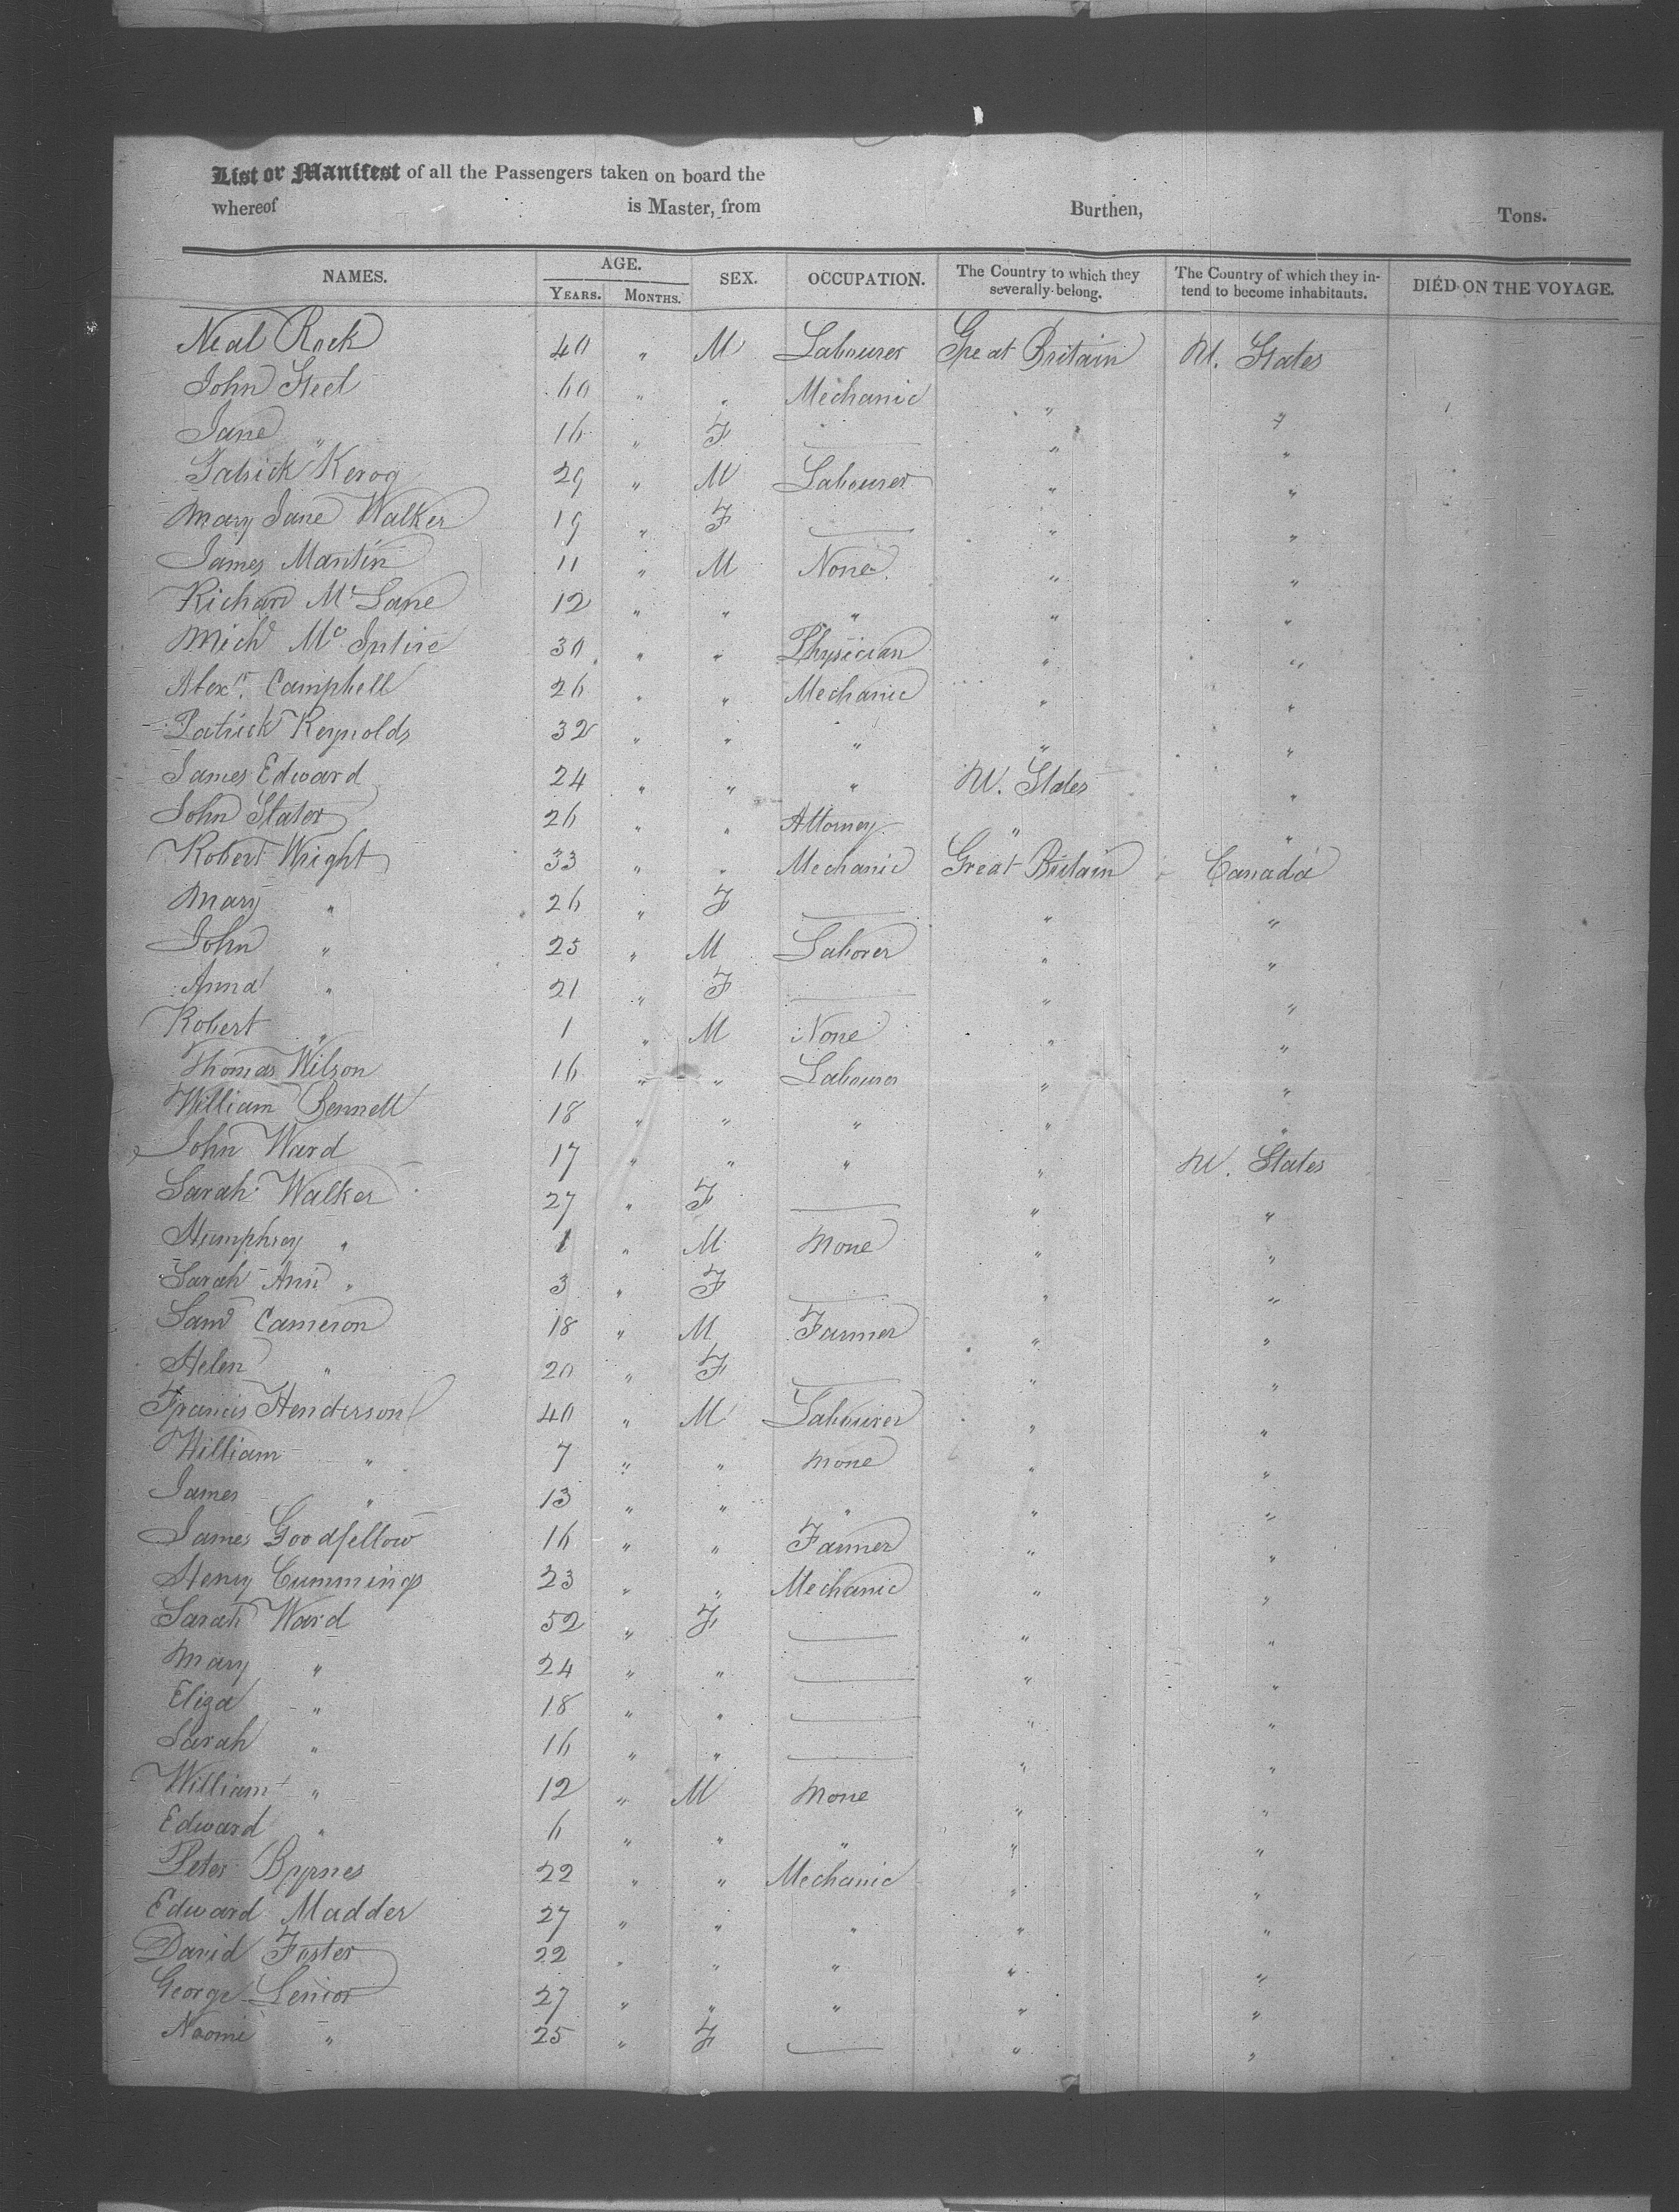 List or Manifest of all the Passengers taken on board the
whereof is Master, from Burthen, Tons.
NAMES. AGE. YEARS. MONTHS. SEX. OCCUPATION. The Country to which they severally belong. The Country of which they intend to become inhabitants. DIED ON THE VOYAGE.
Neal Rock 40 " M Labourer Great Britain U. States
John Steel 60 " " Mechanic " "
Jane " 16 " F — " "
Patrick 29 " M Labourer " "
Mary Jane Walker 19 " F — " "
James Martin 11 " M None " "
Richard McLane 12 " " " " "
Michl McIntire 30 " " Physician " "
Alexr. Campbell 26 " " Mechanic " "
Patrick Reynolds 32 " " " " "
James Edward 24 " " " U. States "
John Slater 26 " " Attorney " "
Robert Wright 33 " " Mechanic Great Britain Canada
Mary " 26 " F — " "
John " 25 " M Laborer " "
Anna " 21 " F — " "
Robert " 1 " M None " "
Thomas Wilson 16 " " Labourer " "
William Bennett 18 " " " " "
John Ward 17 " " " " U. States
Sarah Walker 27 " F — " "
Humphrey " 1 " M None " "
Sarah Ann " 3 " F — " "
Saml Cameron 18 " M Farmer " "
Helen " 20 " F — " "
Francis Henderson 40 " M Labourer " "
William " 7 " " None " "
James " 13 " " " " "
James Goodfellow 16 " " Farmer " "
Henry Cummings 23 " " Mechanic " "
Sarah Ward 52 " F — " "
Mary " 24 " " — " "
Eliza " 18 " " — " "
Sarah " 16 " " — " "
William " 12 " M None " "
Edward " 6 " " " " "
Peter Byrnes 22 " " Mechanic " "
Edward Madder 27 " " " " "
David Foster 22 " " " " "
George Senior 27 " " " " "
Naomi " 25 " F — " "